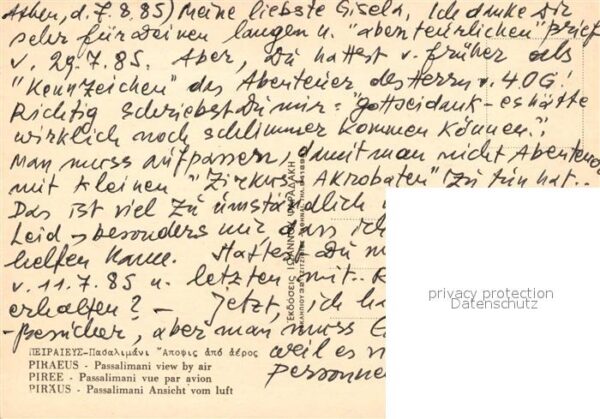 Athen, d. 7.8.85) Meine liebste Gisela, Ich danke Dir
sehr für Deinen langen u. "abenteuerlichen" Brief
v. 29.7.85. Aber, Du hattest v. früher als
"Kennzeichen" das Abenteuer des Herrn v. 4.OG!
Richtig schriebst Du mir: "gottseidank - es hätte
wirklich noch schlimmer kommen können".
Man muss aufpassen, damit man nicht Abenteue
mit kleinen "Zirkus Akrobaten" zu tun hat..
Das ist viel zu umständlich u
Leid - besonders mir dass ich
helfen kann. Hattest Du m
v. 11.7.85 u. letzten mit
erhalten? - Jetzt, ich ha
-Besucher, aber man muss
weil es n
Personne
ΠΕΙΡΑΙΕΥΣ - Πασαλιμάνι Ἄποψις ἀπό ἀέρος
PIRAEUS - Passalimani view by air
PIREE - Passalimani vue par avion
PIRÄUS - Passalimani Ansicht vom luft
ΕΚΔΟΣΕΙΣ ΙΩΑΝΝΟΥ
privacy protection
Datenschutz